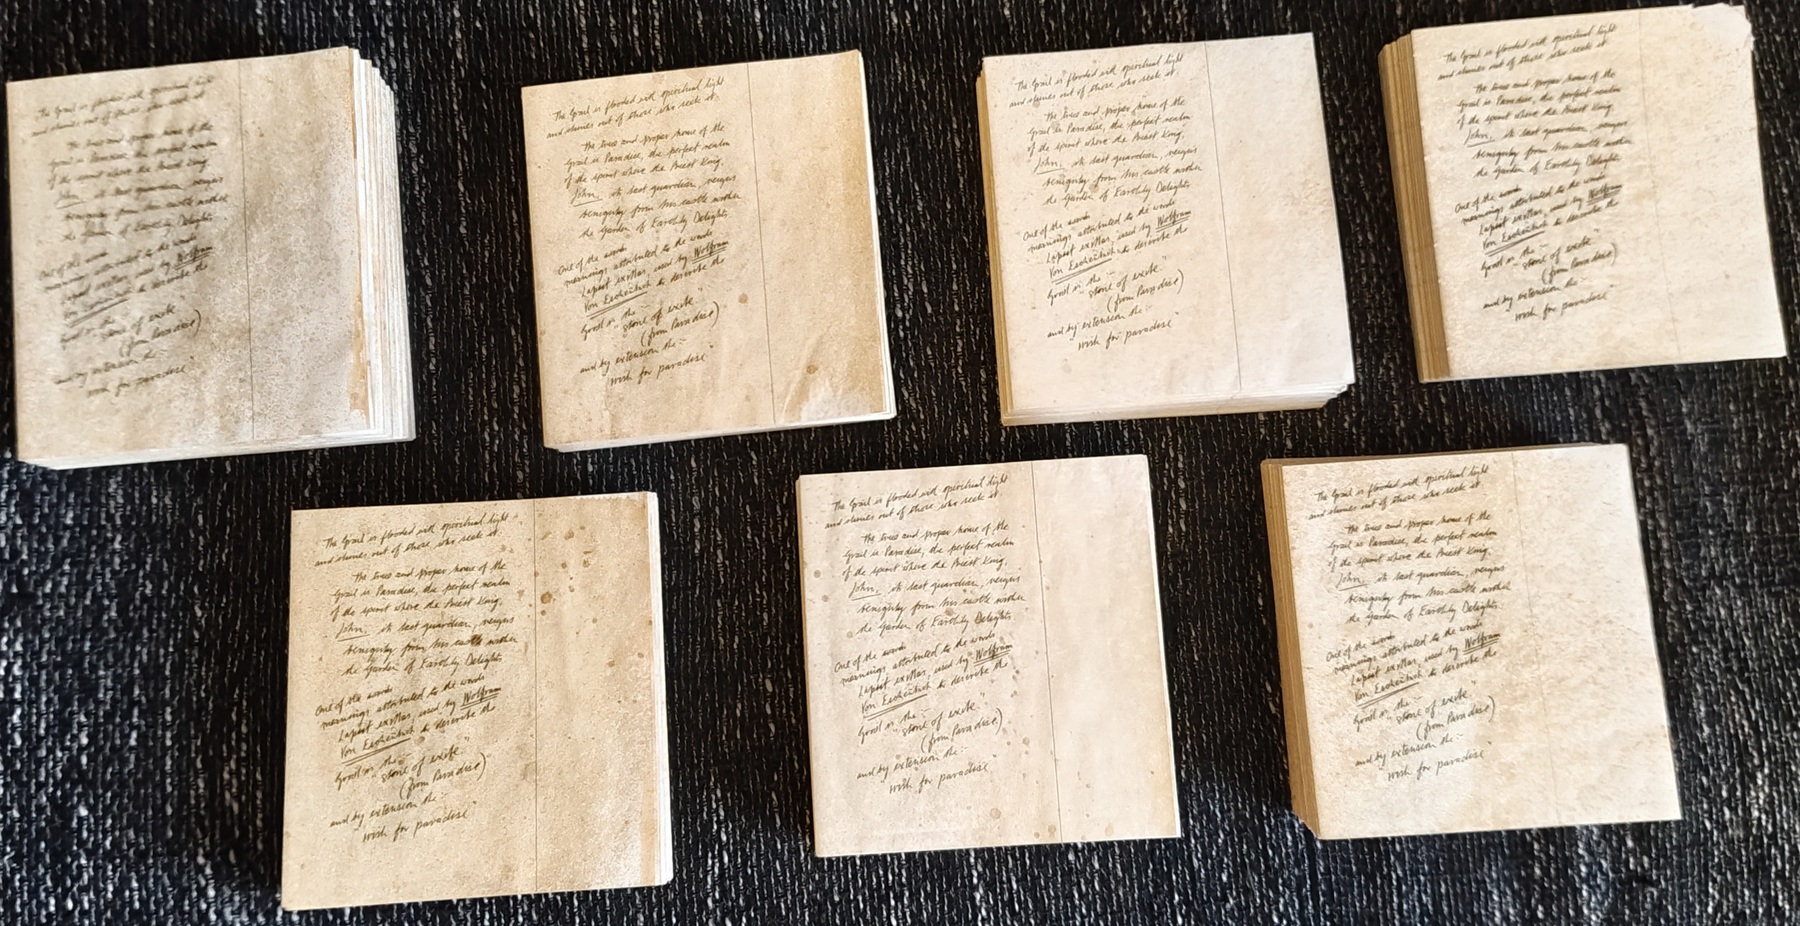 The Grail is flooded with spiritual light
and shines out of those who seek it.
The true and proper home of the
Grail is Paradise, the perfect realm
of the spirit where the Priest King,
John, its last guardian, reigns
benignly from his castle within
the Garden of Earthly Delights
One of the
meanings attributed to the words
Lapsit exillas, used by Wolfram
Von Eschenbach to describe the
Grail is the:-
"stone of exile"
(from Paradise)
and by extension the:-
"wish for paradise"
The Grail is flooded with spiritual light
and shines out of those who seek it.
The true and proper home of the
Grail is Paradise, the perfect realm
of the spirit where the Priest King,
John, its last guardian, reigns
benignly from his castle within
the Garden of Earthly Delights
One of the
meanings attributed to the words
Lapsit exillas, used by Wolfram
Von Eschenbach to describe the
Grail is the:-
"stone of exile"
(from Paradise)
and by extension the:-
"wish for paradise"
The Grail is flooded with spiritual light
and shines out of those who seek it.
The true and proper home of the
Grail is Paradise, the perfect realm
of the spirit where the Priest King,
John, its last guardian, reigns
benignly from his castle within
the Garden of Earthly Delights
One of the
meanings attributed to the words
Lapsit exillas, used by Wolfram
Von Eschenbach to describe the
Grail is the:-
"stone of exile"
(from Paradise)
and by extension the:-
"wish for paradise"
The Grail is flooded with spiritual light
and shines out of those who seek it.
The true and proper home of the
Grail is Paradise, the perfect realm
of the spirit where the Priest King,
John, its last guardian, reigns
benignly from his castle within
the Garden of Earthly Delights
One of the
meanings attributed to the words
Lapsit exillas, used by Wolfram
Von Eschenbach to describe the
Grail is the:-
"stone of exile"
(from Paradise)
and by extension the:-
"wish for paradise"
The Grail is flooded with spiritual light
and shines out of those who seek it.
The true and proper home of the
Grail is Paradise, the perfect realm
of the spirit where the Priest King,
John, its last guardian, reigns
benignly from his castle within
the Garden of Earthly Delights
One of the
meanings attributed to the words
Lapsit exillas, used by Wolfram
Von Eschenbach to describe the
Grail is the:-
"stone of exile"
(from Paradise)
and by extension the:-
"wish for paradise"
The Grail is flooded with spiritual light
and shines out of those who seek it.
The true and proper home of the
Grail is Paradise, the perfect realm
of the spirit where the Priest King,
John, its last guardian, reigns
benignly from his castle within
the Garden of Earthly Delights
One of the
meanings attributed to the words
Lapsit exillas, used by Wolfram
Von Eschenbach to describe the
Grail is the:-
"stone of exile"
(from Paradise)
and by extension the:-
"wish for paradise"
The Grail is flooded with spiritual light
and shines out of those who seek it.
The true and proper home of the
Grail is Paradise, the perfect realm
of the spirit where the Priest King,
John, its last guardian, reigns
benignly from his castle within
the Garden of Earthly Delights
One of the
meanings attributed to the words
Lapsit exillas, used by Wolfram
Von Eschenbach to describe the
Grail is the:-
"stone of exile"
(from Paradise)
and by extension the:-
"wish for paradise"